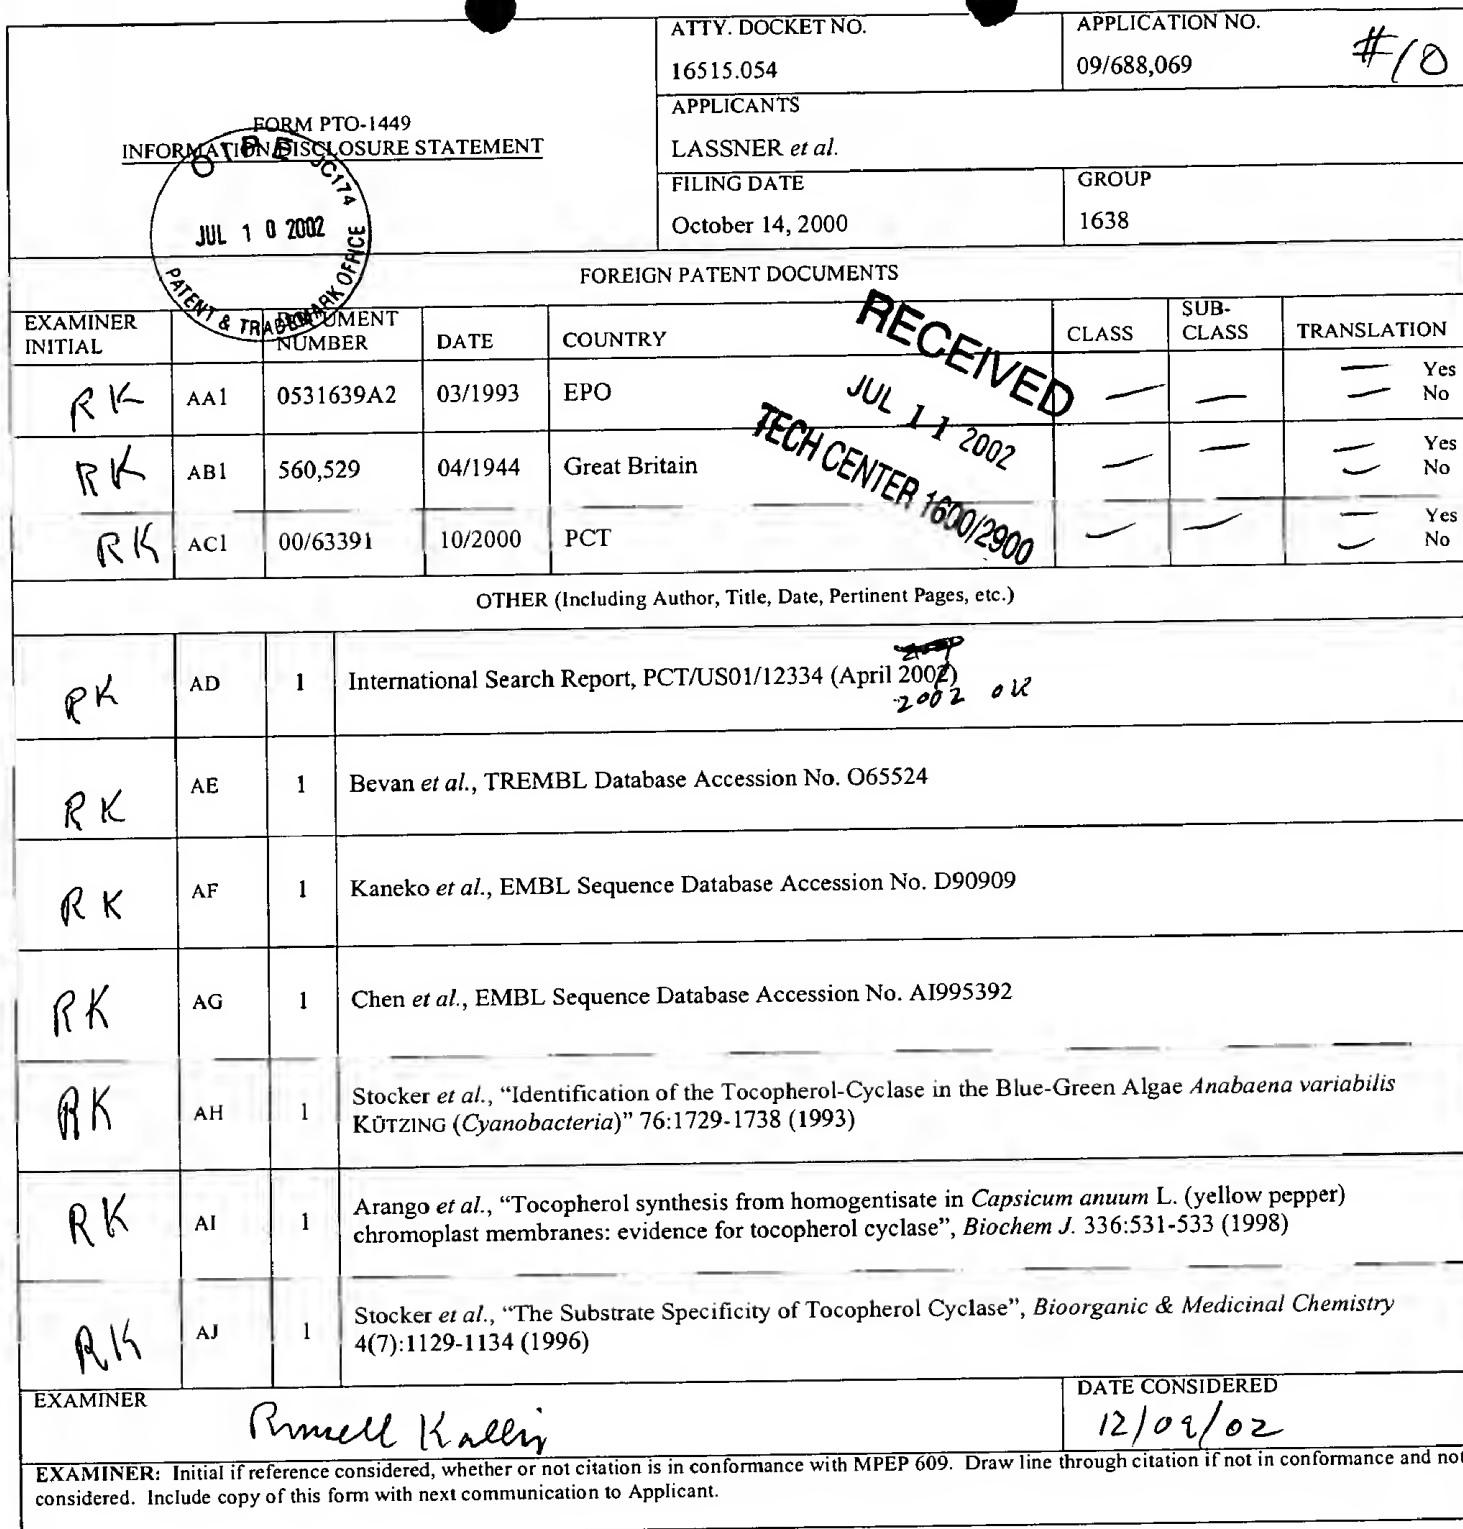 ATTY. DOCKET NO.
16515.054
APPLICATION NO.
09/688,069
#10
FORM PTO-1449
INFORMATION DISCLOSURE STATEMENT
APPLICANTS
LASSNER et al.
FILING DATE
October 14, 2000
GROUP
1638
OIPE JC174
JUL 10 2002
PATENT & TRADEMARK OFFICE
FOREIGN PATENT DOCUMENTS
EXAMINER INITIAL DOCUMENT NUMBER DATE COUNTRY CLASS SUB-CLASS TRANSLATION
RECEIVED
JUL 11 2002
TECH CENTER 1600/2900
RK AA1 0531639A2 03/1993 EPO — — — Yes
— No
RK AB1 560,529 04/1944 Great Britain — — — Yes
— No
RK AC1 00/63391 10/2000 PCT — — — Yes
— No
OTHER (Including Author, Title, Date, Pertinent Pages, etc.)
RK AD 1 International Search Report, PCT/US01/12334 (April 2002)
2002 OK
RK AE 1 Bevan et al., TREMBL Database Accession No. O65524
RK AF 1 Kaneko et al., EMBL Sequence Database Accession No. D90909
RK AG 1 Chen et al., EMBL Sequence Database Accession No. AI995392
RK AH 1 Stocker et al., “Identification of the Tocopherol-Cyclase in the Blue-Green Algae Anabaena variabilis
KÜTZING (Cyanobacteria)” 76:1729-1738 (1993)
RK AI 1 Arango et al., “Tocopherol synthesis from homogentisate in Capsicum anuum L. (yellow pepper)
chromoplast membranes: evidence for tocopherol cyclase”, Biochem J. 336:531-533 (1998)
RK AJ 1 Stocker et al., “The Substrate Specificity of Tocopherol Cyclase”, Bioorganic & Medicinal Chemistry
4(7):1129-1134 (1996)
EXAMINER
Russell Kallis
DATE CONSIDERED
12/09/02
EXAMINER: Initial if reference considered, whether or not citation is in conformance with MPEP 609. Draw line through citation if not in conformance and not
considered. Include copy of this form with next communication to Applicant.